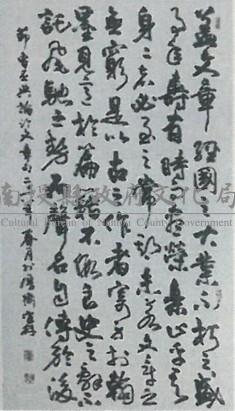 蓋文章經國之大業不朽之盛
事年壽有時而盡榮樂止乎其
身二者必至之常期未若文章之
無窮是以古之作者寄身於翰
墨見意於篇籍不假良史之辭不
託飛馳之勢而聲名自傳於後
節曹丕典論論文章句
春月於
南投縣政府文化局
Cultural Bureau of Nantou County Government